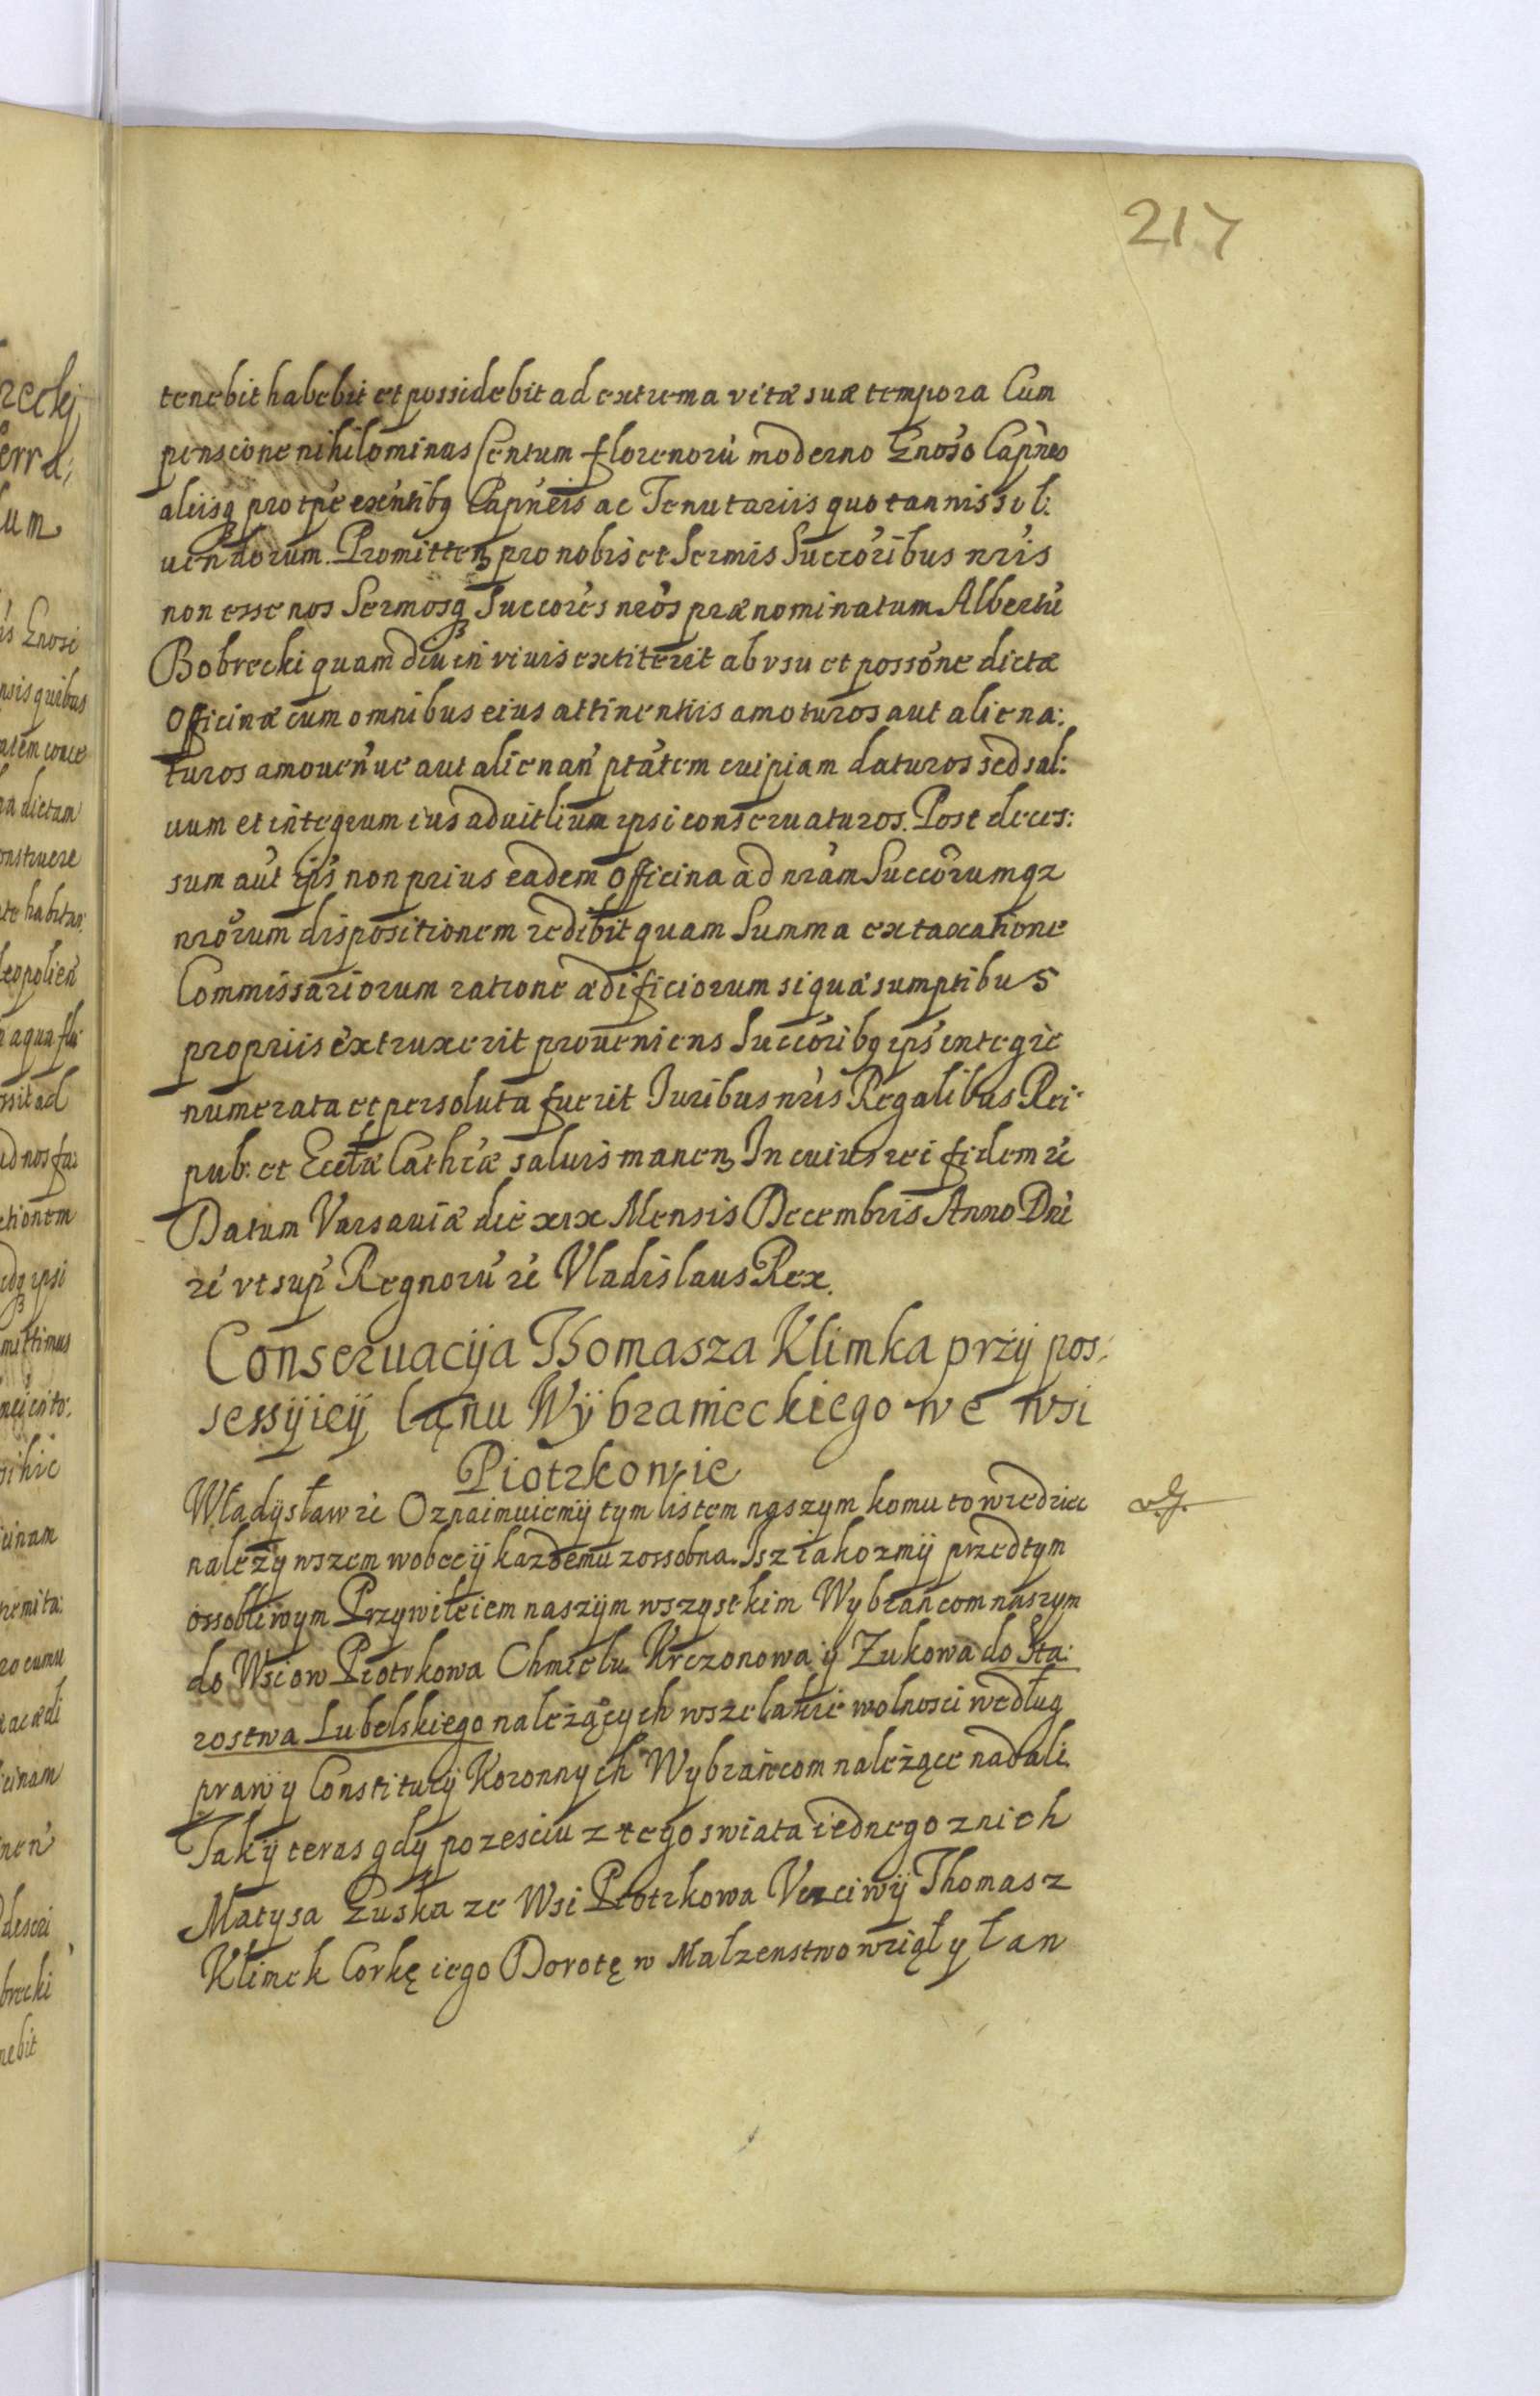 217
tenebit habebit et possidebit ad extrema vitæ suæ tempora Cum
penscione nihilominus Centum florenorù moderno Gnoso Capneo
aliisq pro tpe exentibq Capneis ac Tenutariis quotannis sol:
uendorum. Promitten pro nobis et Sermis Succoribus nris
non esse nos Sermosq Succores nros prænominatum Albertù
Bobrecki quamdiu in viuis extiterit ab vsu et possone dictæ
Officinæ cum omnibus eius attinentiis amoturos aut aliena:
turos amouen ue aut alienan ptatem cuipiam daturos sed sal:
uum et integrum ius aduitlium ipsi conseruaturos. Post deces:
sum aut ips non prius eadem Officina ad nram Succorumqz
nrorum dispositionem redibit quam Summa ex taxatione
Commissariorum ratione ædificiorum si quæ sumptibus
propriis extruxerit proueniens Succoribq ips integre
numerata et persoluta fuerit Iuribus nris Regalibus Rei
pub: et Ecclæ Cathcæ saluis manen In cuius rei fidem rc
Datum Varsauiæ die xıx Mensis Decembris Anno Dni
rc vt sup Regnorù rc Vladislaus Rex.
Conseruacija Thomasza Klimka przÿ pos:
sessÿieÿ łanu Wÿbranieckiego we wsi
Piotrkowie
Władÿsław rc Oznaimuiemÿ tym listem naszym komu to wiedziec
należy wszem wobec ÿ każdemu zossobna. Isz iakozmÿ przedtym
ossobliwym Przywileiem naszÿm wszystkim Wybrancom naszym
do Wsiow Piotrkowa Chmielu Krczonowa ÿ Zukowa do Sta:
rostwa Lubelskiego należących wszelakie wolnosci według
praw ÿ Constitucÿ Koronnych Wybrancom należące nadali
Tak ÿ teras gdy po zesciu z tego swiata iednego z nich
Matysa Guska ze Wsi Piotrkowa Vczciwÿ Thomasz
Klimek Corkę iego Dorotę w Malzenstwo wziął y łan